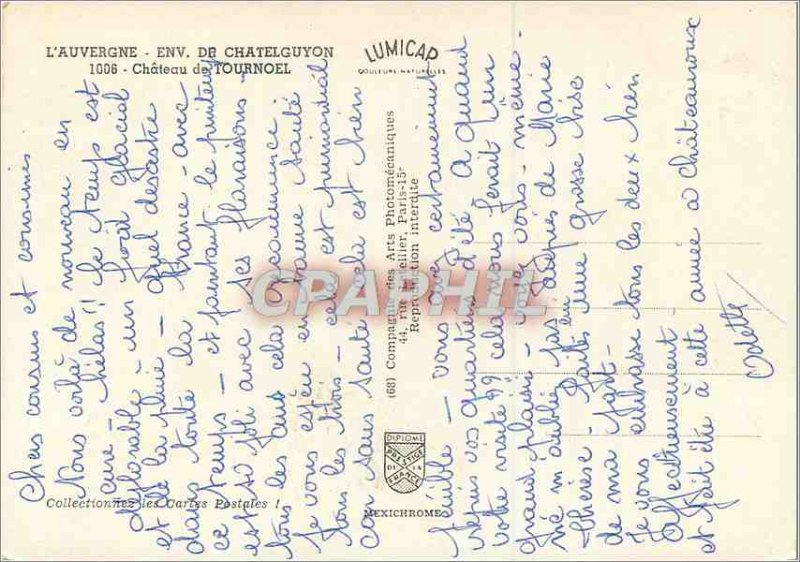 L'AUVERGNE - ENV. DE CHATELGUYON
1006 - Château de TOURNOEL
LUMICAP
COULEURS NATURELLES
Chers cousins et cousines
Nous voilà de nouveau en
cure - hélas !! le temps est
déplorable - un froid glacial
et de la pluie - quel désastre
dans toute la France - avec
ce temps - et pourtant le printemps
est si joli avec ses floraisons -
tous les ans cela recommence :
Je vous espère en bonne santé
tous les trois - cela est primordial
car sans santé cela est bien
pénible - vous avez certainement
repris vos quartiers d'été A quand
votre visite ?? cela nous ferait un
grand plaisir - voyez vous-même -
ne m'oubliez pas auprès de Marie
Thérèse - faites lui en une grosse bise
de ma part -
Je vous embrasse tous les deux bien
affectueusement
et peut être à cette année à Châteauroux
Odette
(68) Compagnie des Arts Photomécaniques
44, rue Letellier, Paris-15e
Reproduction interdite
DIPLOME
PRESTIGE
DE LA
FRANCE
MEXICHROME
Collectionnez les Cartes Postales !
CPAPHIL